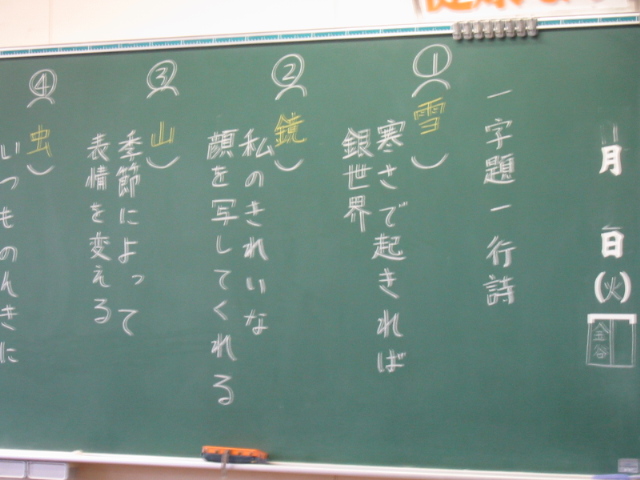 月 日(火)
一字題一行詩
①(雪)
寒さで起きれば
銀世界
②(鏡)
私のきれいな
顔を写してくれる
③(山)
季節によって
表情を変える
④(虫)
いつものんきに